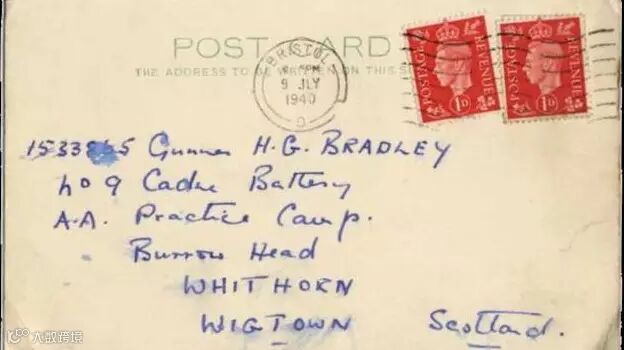 POST CARD
THE ADDRESS TO BE WRITTEN ON THIS
BRISTOL
PM
9 JLY
1940
POSTAGE REVENUE
1D
POSTAGE REVENUE
1D
1533 5 Gunner H.G. BRADLEY
No 9 Cadre Battery
A.A. Practice Camp.
Burrow Head
WHITHORN
WIGTOWN Scotland.
大数跨境